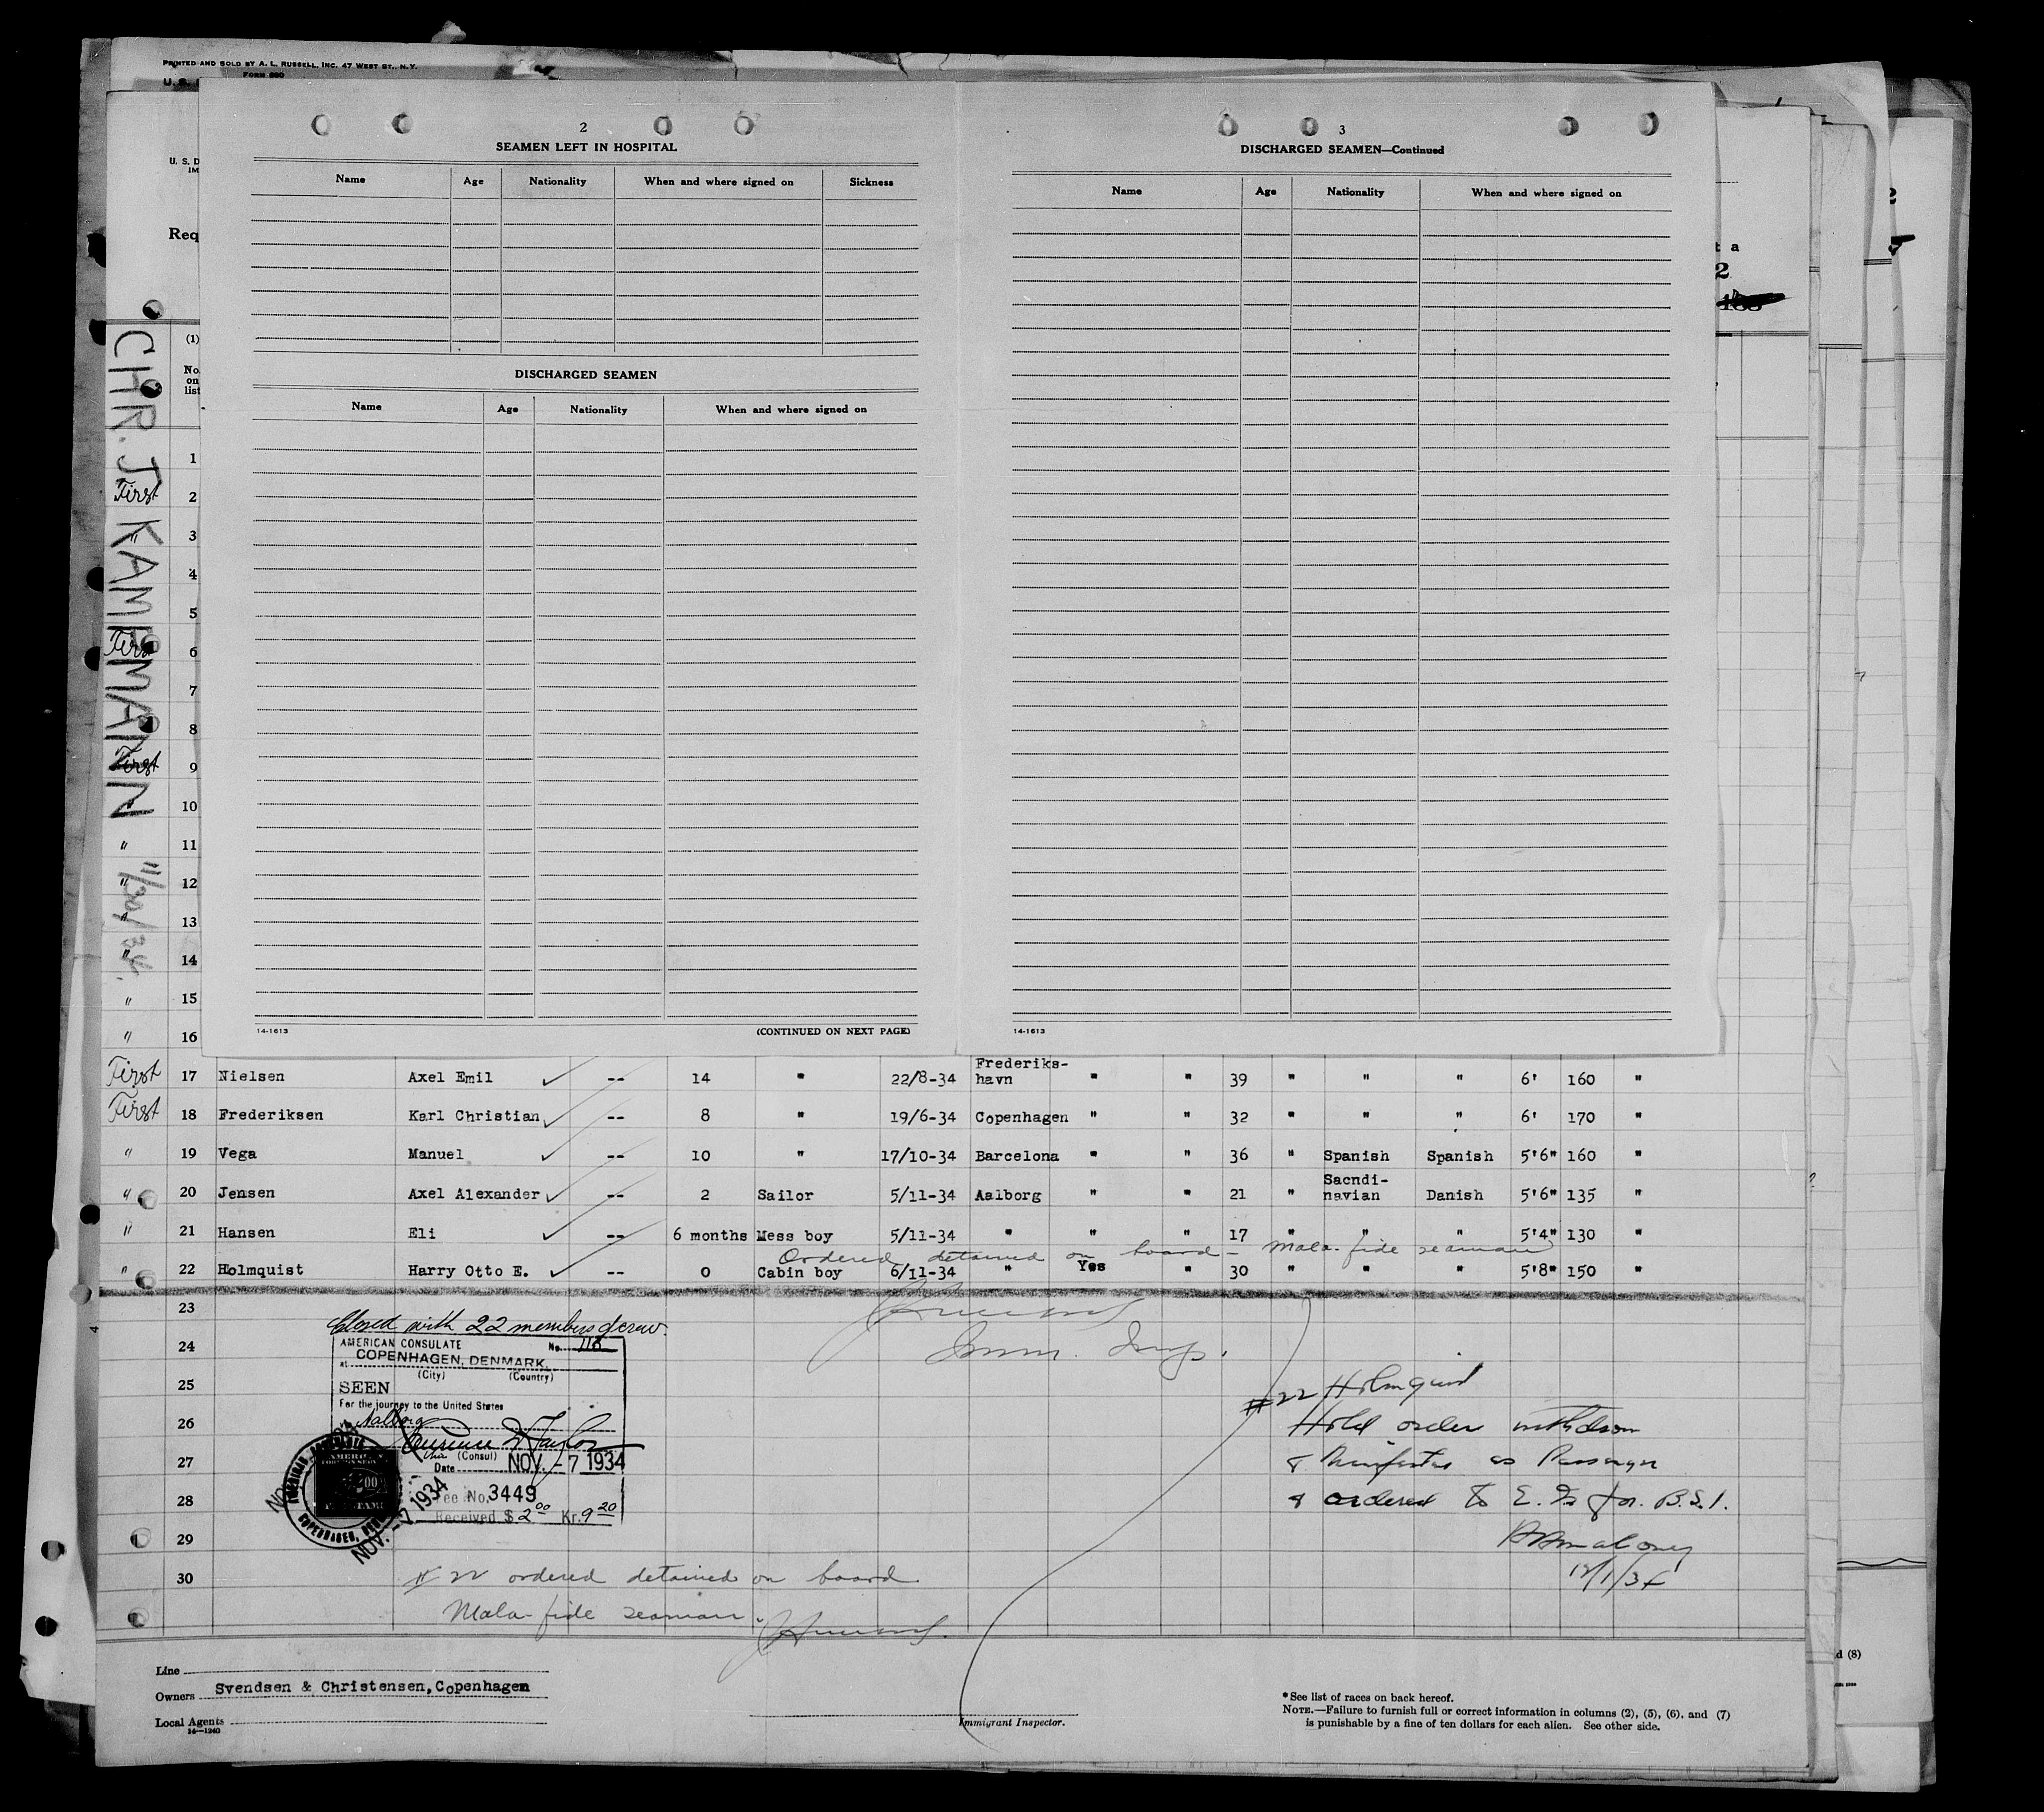 PRINTED AND SOLD BY A. L. RUSSELL, INC. 47 WEST ST., N.Y.
FORM 680
U. S.
U. S. D
IM
Req
t a
2
(1)
No. on list
CHR. J. KAMPMANN 11/30/34.
2
SEAMEN LEFT IN HOSPITAL
Name Age Nationality When and where signed on Sickness
DISCHARGED SEAMEN
Name Age Nationality When and where signed on
14-1613 (CONTINUED ON NEXT PAGE)
3
DISCHARGED SEAMEN—Continued
Name Age Nationality When and where signed on
14-1613
1
First 2
" 3
4
5
First 6
7
8
First 9
" 10
" 11
" 12
" 13
" 14
" 15
" 16
First 17 Nielsen Axel Emil ✓ -- 14 " 22/8-34 Frederiks-havn " " 39 " " " 6' 160 "
First 18 Frederiksen Karl Christian ✓ -- 8 " 19/6-34 Copenhagen " " 32 " " " 6' 170 "
" 19 Vega Manuel ✓ -- 10 " 17/10-34 Barcelona " " 36 " Spanish Spanish 5'6" 160 "
" 20 Jensen Axel Alexander ✓ -- 2 Sailor 5/11-34 Aalborg " " 21 " Sacndi-navian Danish 5'6" 135 "
" 21 Hansen Eli ✓ -- 6 months Mess boy 5/11-34 " " " 17 " " " 5'4" 130 "
Ordered detained on board - Mala-fide seaman
" 22 Holmquist Harry Otto E. ✓ -- 0 Cabin boy 6/11-34 " Yes " 30 " " " 5'8" 150 "
23
24
25
26
27
28
29
30
Closed with 22 members of crew.
AMERICAN CONSULATE No. 118
at COPENHAGEN, DENMARK.
(City) (Country)
SEEN
For the journey to the United States
Aalborg
(Consul)
Date NOV. -7 1934
Fee No. 3449
Received $ 2.00 Kr. 9.20
NOV. -7 1934
Imm. Insp.
#22 Holmquist
Hold order withdrawn
& Manifested as Passenger
& ordered to E. Is for B.S.I.
12/1/34
# 22 ordered detained on board
Mala-fide seaman.
Line
Owners Svendsen & Christensen, Copenhagen
Local Agents
14—1240
Immigrant Inspector.
*See list of races on back hereof.
NOTE.—Failure to furnish full or correct information in columns (2), (5), (6), and (7)
is punishable by a fine of ten dollars for each alien. See other side.
d (8)